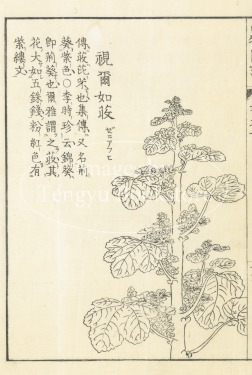 視爾如荍
ゼニアフヒ
傳荍芘芣也集傳又名荊
葵紫色〇李時珍云錦葵
即荊葵也爾雅謂之荍其
花大如五銖錢粉紅色有
紫縷文